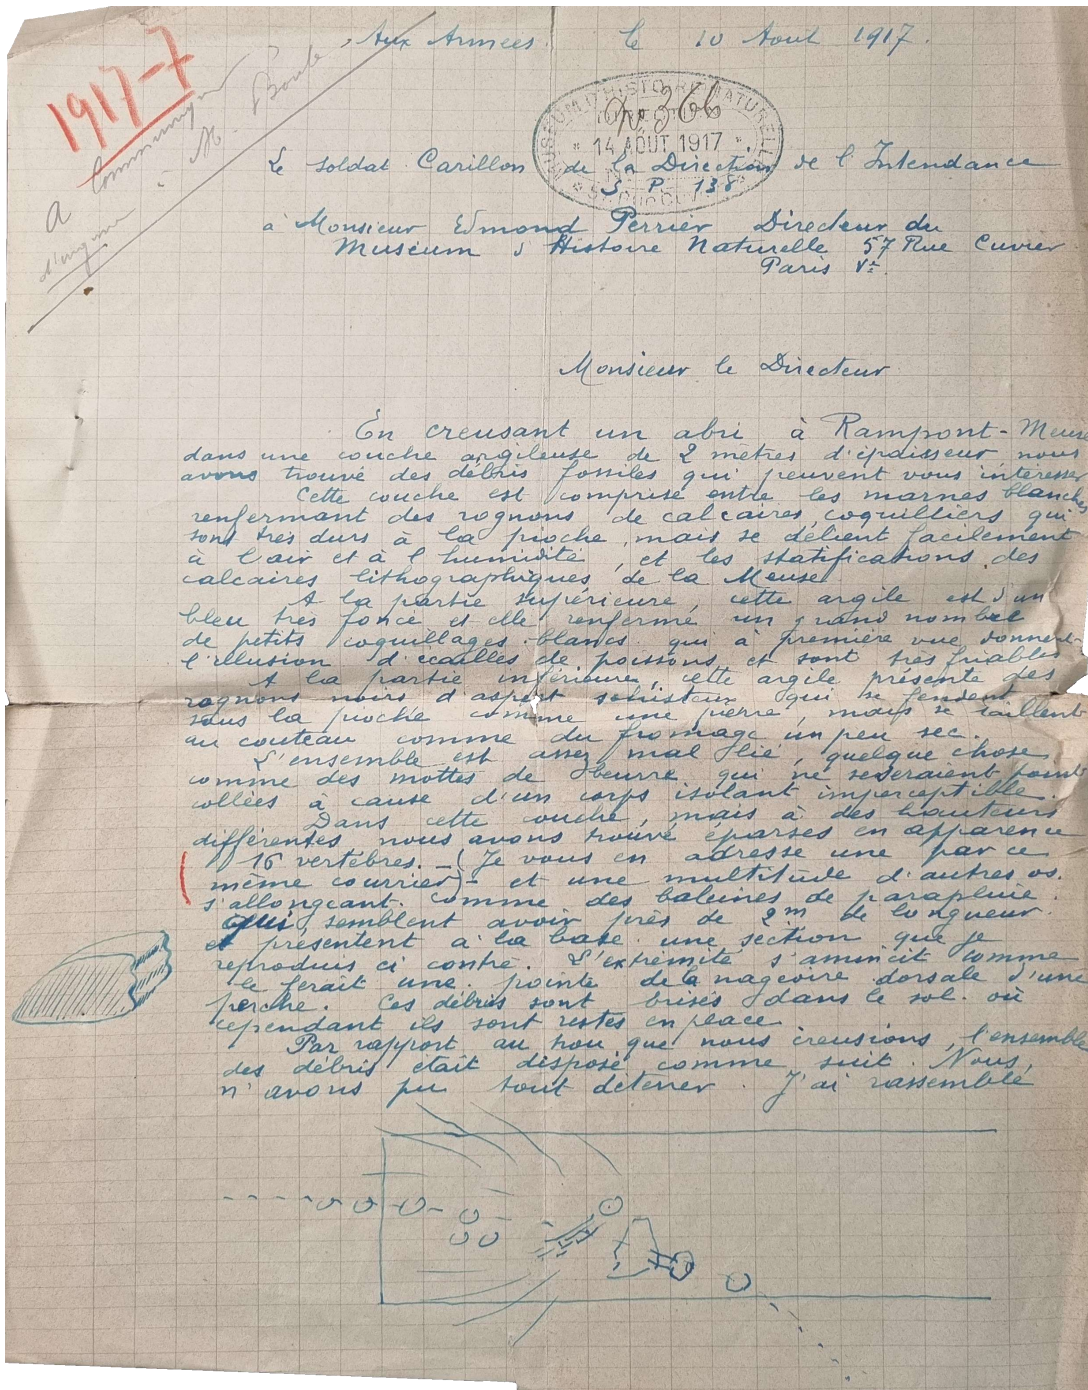 Aux Armées. le 10 Aout 1917.
1917-7
A communiquer
d'urgence à M. Boule
MUSEUM D'HISTOIRE NATURELLE
No 366
* 14 AOUT 1917 *
Le soldat Carillon de la Direction de l Intendance
S. P. 138
à Monsieur Edmond Perrier Directeur du
Muséum d Histoire Naturelle 57 Rue Cuvier
Paris Ve.
Monsieur le Directeur
En creusant un abri à Rampont-Meuse
dans une couche argileuse de 2 mètres d'épaisseur nous
avons trouvé des débris fossiles qui peuvent vous intéresser
Cette couche est comprise entre les marnes blanches
renfermant des rognons de calcaires coquilliers qui
sont très durs à la pioche, mais se délient facilement
à l'air et à l humidité, et les statifications des
calcaires lithographiques de la Meuse
A la partie supérieure, cette argile est d'un
bleu très foncé et elle renferme un grand nombre
de petits coquillages blancs qui à première vue donnent
l'illusion d'écailles de poissons et sont très friables
A la partie inférieure, cette argile présente des
rognons noirs d'aspect schisteux qui se fendent
sous la pioche comme une pierre, mais se taillent
au couteau comme du fromage un peu sec.
L'ensemble est assez mal lié, quelque chose
comme des mottes de beurre qui ne se seraient point
collées à cause d'un corps isolant imperceptible.
Dans cette couche, mais à des hauteurs
différentes nous avons trouvé éparses en apparence
16 vertèbres. - (Je vous en adresse une par ce
même courrier) - et une multitude d'autres os.
s'allongeant comme des baleines de parapluie.
qui, semblent avoir près de 2m de longueur
et présentent à la base une section que je
reproduis ci contre. L'extrémité s'amincit comme
le ferait une pointe de la nageoire dorsale d'une
perche. Ces débris sont brisés dans le sol où
cependant ils sont restés en place
Par rapport au trou que nous creusions, l'ensemble
des débris était disposé comme suit. Nous
n'avons pu tout déterrer. J'ai rassemblé